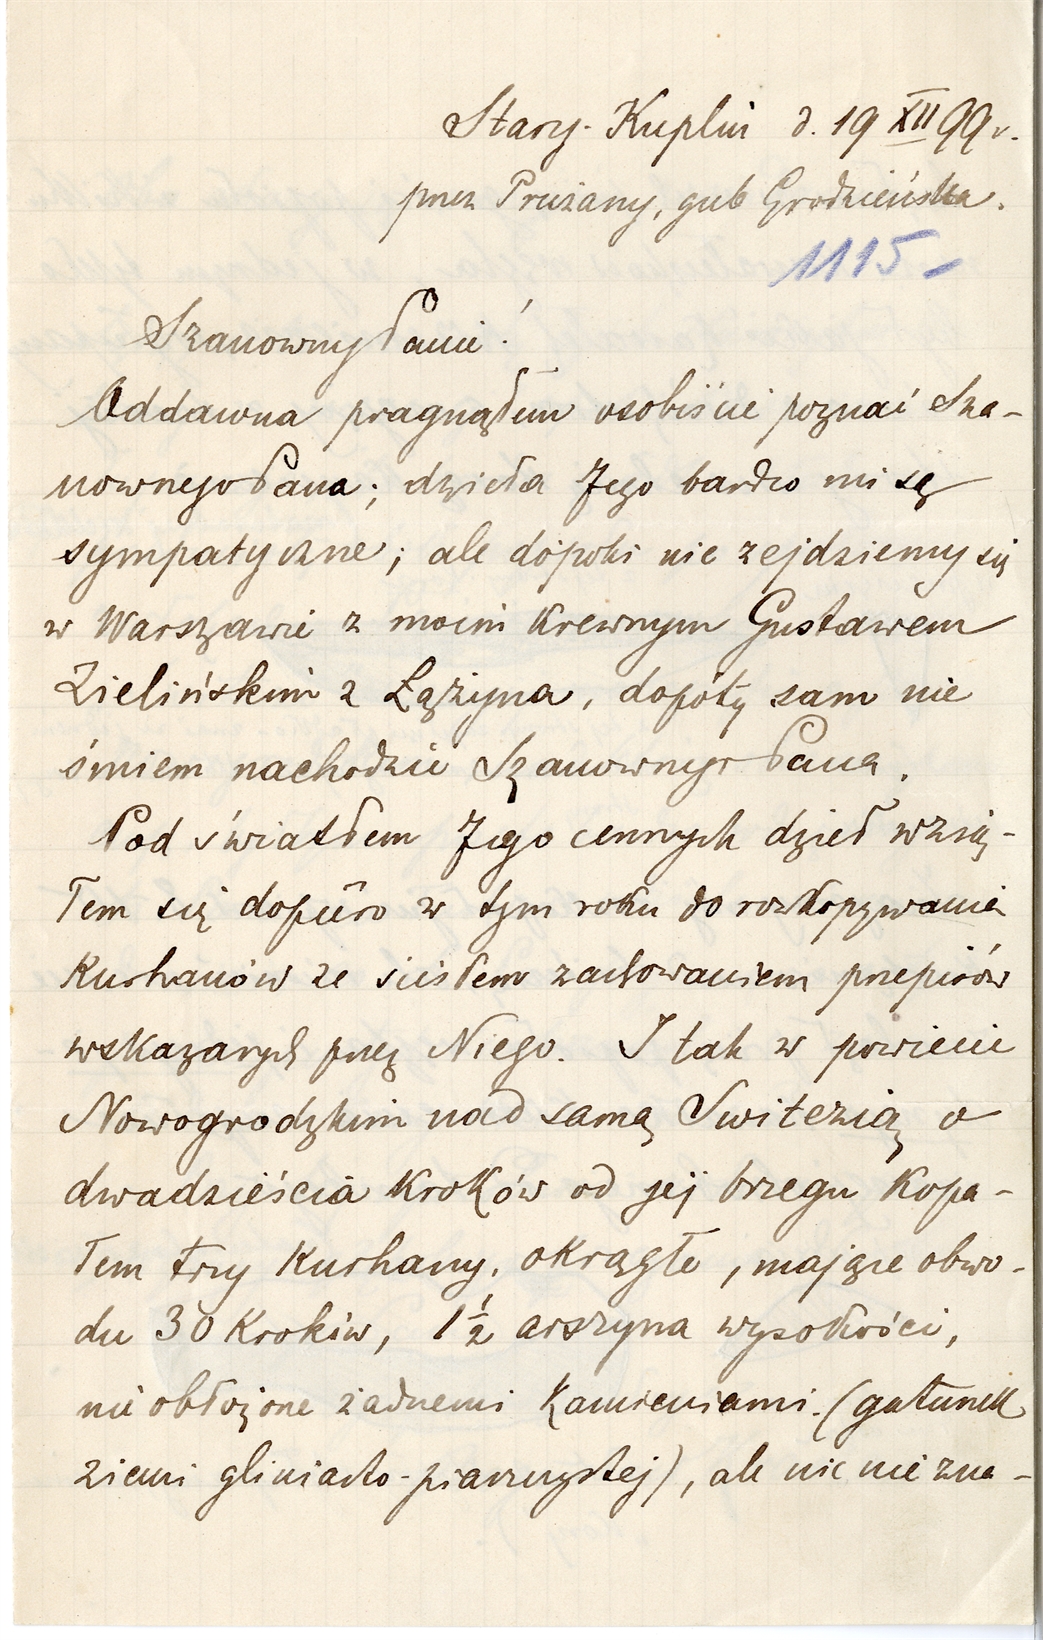 Stary-Kuplin d. 19 XII 99 r.
przez Prużany, gub Grodzieńska.
1115-
Szanowny Panie!
Oddawna pragnąłem osobiście poznać Sza-
nownego Pana; dzieła Jego bardzo mi są
sympatyczne; ale dopóki nie zejdziemy się
w Warszawie z moim krewnym Gustawem
Zielińskim z Łążyna, dopóty sam nie
śmiem nachodzić Szanownego Pana.
Pod światłem Jego cennych dzieł wzią-
łem się dopiero w tym roku do rozkopywania
Kurhanów ze ścisłem zachowaniem przepisów
wskazanych przez Niego. I tak w powiecie
Nowogrodzkim nad samą Świtezią o
dwadzieścia kroków od jej brzegu kopa-
łem trzy Kurhany, okrągłe, mające obwo-
du 30 Kroków, 1 1/2 arszyna wysokości,
nie obłożone żadnemi kamieniami. (gatunek
ziemi gliniasto-piaszczystej), ale nic nie zna-